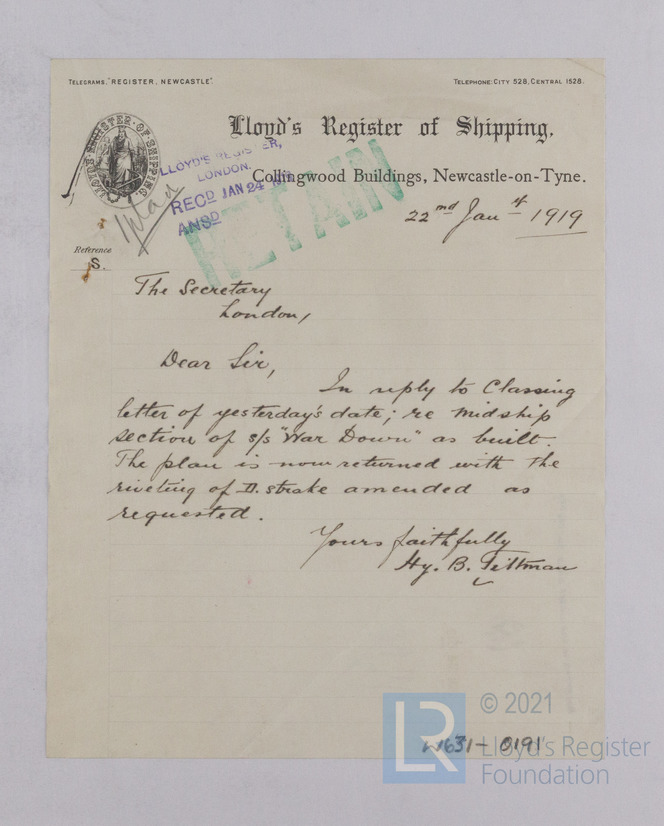 TELEGRAMS, "REGISTER, NEWCASTLE".
TELEPHONE: CITY 528, CENTRAL 1528.
LLOYD'S REGISTER OF SHIPPING
Lloyd's Register of Shipping,
Collingwood Buildings, Newcastle-on-Tyne.
LLOYD'S REGISTER,
LONDON.
RECD JAN 24
ANSD
RETAIN
1 plan
22nd Jany 1919
Reference
S.
The Secretary
London,
Dear Sir,
In reply to Classing
letter of yesterday's date; re midship
section of s/s "War Down" as built.
The plan is now returned with the
riveting of D. strake amended as
requested.
Yours faithfully
Hy. B. Tittman
W631-0191
LR
© 2021
Lloyd's Register
Foundation